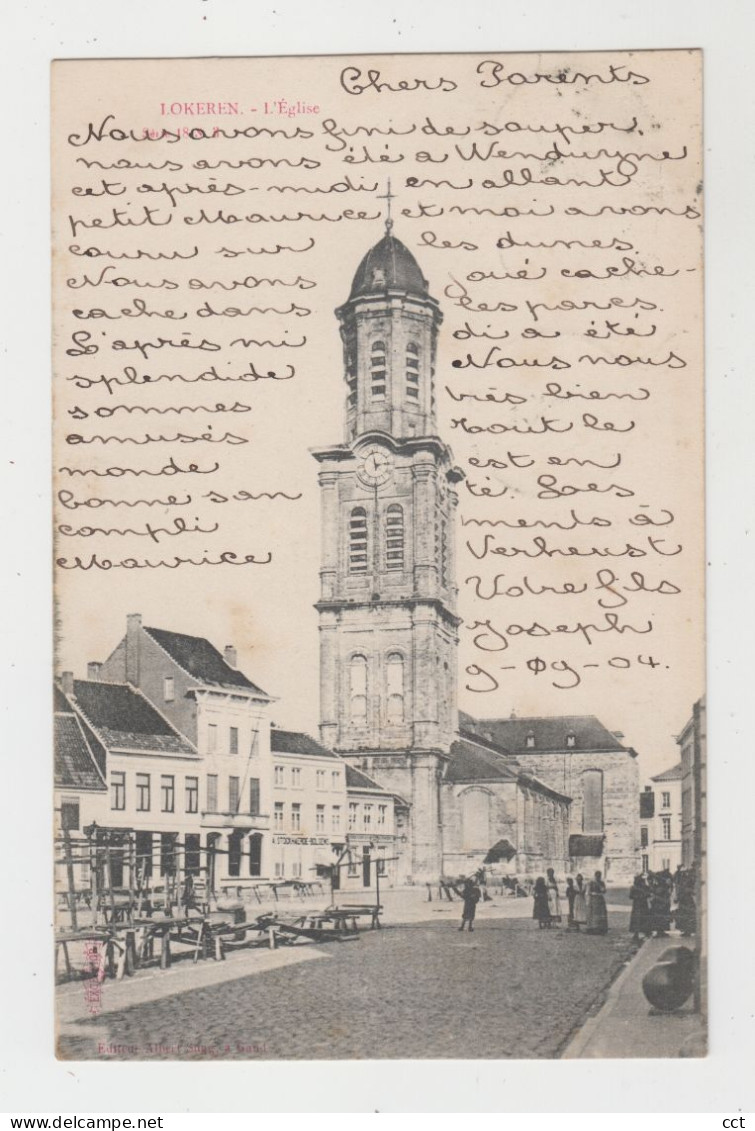 Chers Parents
LOKEREN. - L'Église
Nous avons fini de souper.
nous avons été a Wenduyne
cet après-midi en allant
petit Maurice et moi avons
couru sur les dunes.
Nous avons joué cache-
cache dans les parcs.
L'après mi di a été
splendide Nous nous
sommes très bien
amusés Tout le
monde est en
bonne san té. Foes
compli ments à
Maurice Verheust
Votre fils
Joseph
9-09-04.
STOCKMANS-
Editeur Albert Sugg, a Gand
cct